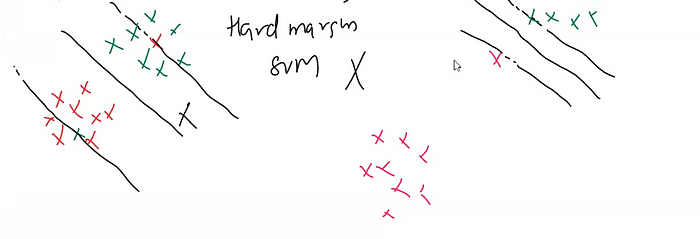 Hard margin
SVM X